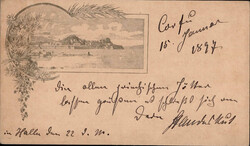 Corfu
15 Januar
1897
Die alten griechischen Götter
lassen grüßen u schließt sich an
Dein
in Halle den 22. d. M.